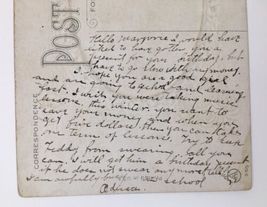 POST
CORRESPONDENCE
Hello Marjorie I would have
liked to have gotten you a
present for your birthday, but
have to go slow with my money.
I hope you are a good girl
and are going to school and learning
fast. I wish you were taking music
lessons, this winter, you want to
save your money and when you
get five dollars then you can take
one term of lessons. Try to keep
Teddy from swearing all you
can. I will get him a birthday present
if he does not swear any more. Tell
I am awfully busy school